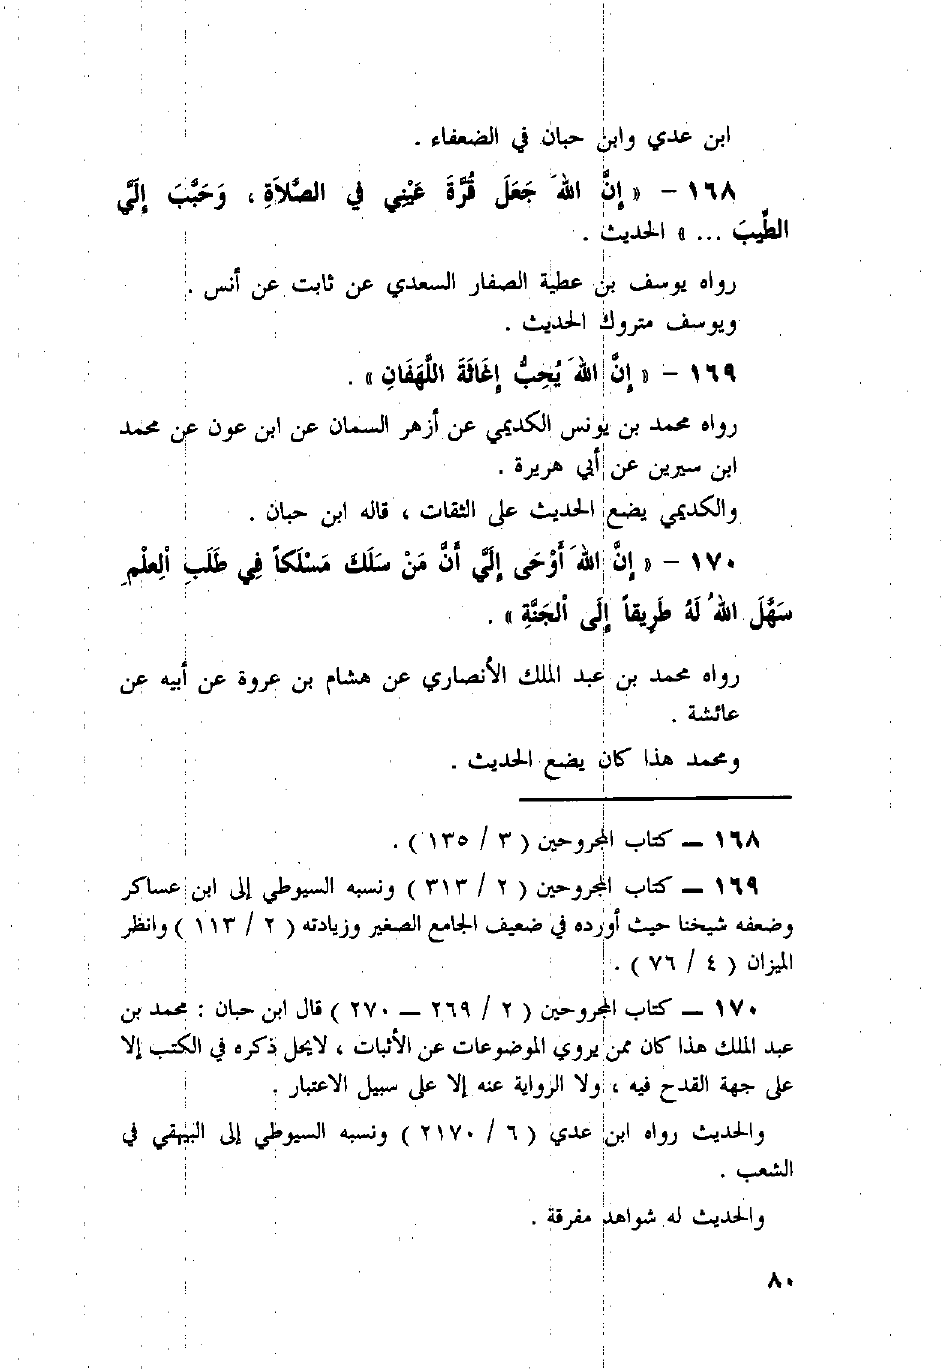 ابن عدي وابن حبان في الضعفاء .
١٦٨ – « إِنَّ اللهَ جَعَلَ قُرَّةَ عَيْنِي في الصَّلاَةِ ، وَحَبَّبَ إِلَيَّ
الطِّيبَ ... » الحديث .
رواه يوسف بن عطية الصفار السعدي عن ثابت عن أنس .
ويوسف متروك الحديث .
١٦٩ – « إِنَّ اللهَ يُحِبُّ إِغَاثَةَ اللَّهَفَانِ » .
رواه محمد بن يونس الكديمي عن أزهر السمان عن ابن عون عن محمد
ابن سيرين عن أبي هريرة .
والكديمي يضع الحديث على الثقات ، قاله ابن حبان .
١٧٠ – « إِنَّ اللهَ أَوْحَى إِلَيَّ أَنَّ مَنْ سَلَكَ مَسْلَكاً فِي طَلَبِ اْلعِلْمِ
سَهَّلَ اللهُ لَهُ طَرِيقاً إِلَى اْلجَنَّةِ » .
رواه محمد بن عبد الملك الأنصاري عن هشام بن عروة عن أبيه عن
عائشة .
ومحمد هذا كان يضع الحديث .
١٦٨ – كتاب المجروحين ( ٣ / ١٣٥ ) .
١٦٩ – كتاب المجروحين ( ٢ / ٣١٣ ) ونسبه السيوطي إلى ابن عساكر
وضعفه شيخنا حيث أورده في ضعيف الجامع الصغير وزيادته ( ٢ / ١١٣ ) وانظر
الميزان ( ٤ / ٧٦ ) .
١٧٠ – كتاب المجروحين ( ٢ / ٢٦٩ – ٢٧٠ ) قال ابن حبان : محمد بن
عبد الملك هذا كان ممن يروي الموضوعات عن الأثبات ، لايحل ذكره في الكتب إلا
على جهة القدح فيه ، ولا الرواية عنه إلا على سبيل الاعتبار .
والحديث رواه ابن عدي ( ٦ / ٢١٧٠ ) ونسبه السيوطي إلى البيهقي في
الشعب .
والحديث له شواهد مفرقة .
٨٠